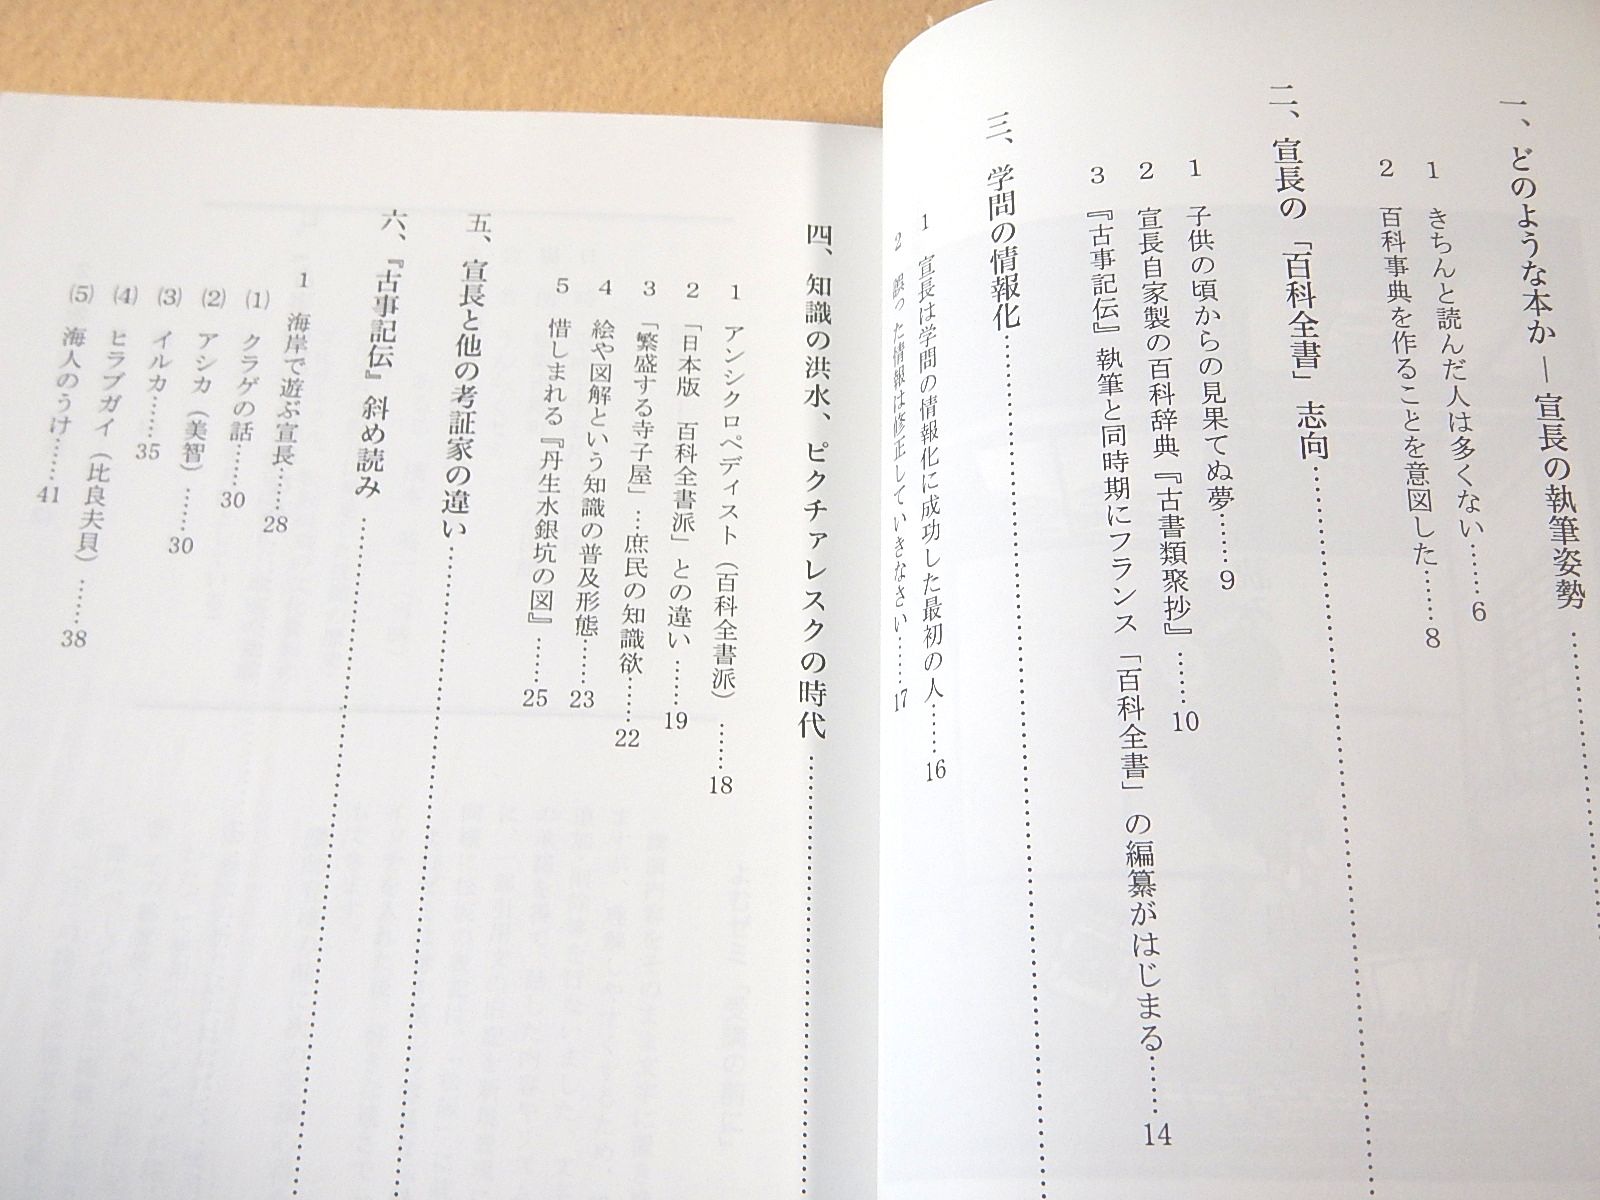 一、どのような本か―宣長の執筆姿勢……
1 きちんと読んだ人は多くない……6
2 百科事典を作ることを意図した……8
二、宣長の「百科全書」志向……
1 子供の頃からの見果てぬ夢……9
2 宣長自家製の百科辞典『古書類聚抄』……10
3 『古事記伝』執筆と同時期にフランス「百科全書」の編纂がはじまる……14
三、学問の情報化……
1 宣長は学問の情報化に成功した最初の人……16
2 誤った情報は修正していきなさい……17
四、知識の洪水、ピクチァレスクの時代……
1 アンシクロペディスト（百科全書派）……18
2 「日本版 百科全書派」との違い……19
3 「繁盛する寺子屋」…庶民の知識欲……22
4 絵や図解という知識の普及形態……23
5 惜しまれる『丹生水銀坑の図』……25
五、宣長と他の考証家の違い……
六、『古事記伝』斜め読み……
1 海岸で遊ぶ宣長……28
(1) クラゲの話……30
(2) アシカ（美智）……30
(3) イルカ……35
(4) ヒラブガイ（比良夫貝）……38
(5) 海人のうけ……41